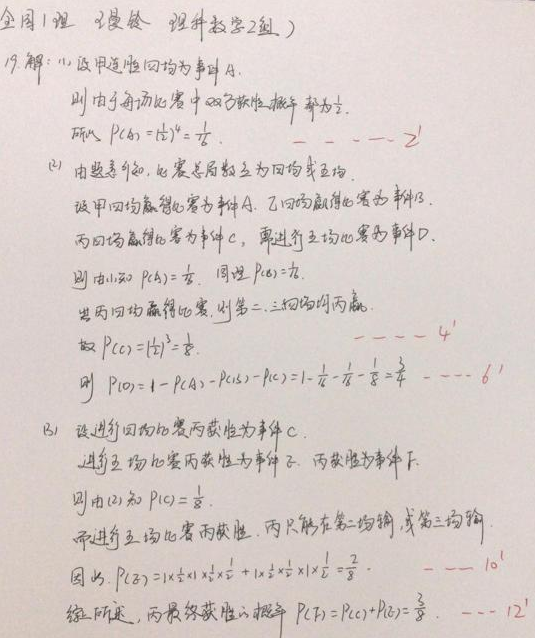 全国1理 理科数学2组)
19.解:(1)设甲连胜四场为事件A.
则由于每场比赛中双方获胜概率都为½.
所以 P(A)=(½)⁴=1/16. - - - - - 2'
(2) 由题意可知,比赛总局数至为四场或五场.
设甲四场赢得比赛为事件A. 乙四场赢得比赛为事件B.
丙四场赢得比赛为事件C, 需进行五场比赛为事件D.
则由(1)知 P(A)=1/16. 同理P(B)=1/16.
若丙四场赢得比赛.则第二.三.四场均丙赢.
故 P(C)=(½)³=1/8. - - - - 4'
则 P(D)=1-P(A)-P(B)-P(C)=1-1/16-1/16-1/8=3/4 - - - - 6'
(3) 设进行四场比赛丙获胜为事件C.
进行五场比赛丙获胜为事件E. 丙获胜为事件F.
则由(2)知 P(C)=1/8.
而进行五场比赛丙获胜.丙只能在第二场输,或第三场输
因此.P(E)=1×½×1×½×½+1×½×½×1×½=2/8. - - - 10'
综上所述,丙最终获胜的概率 P(F)=P(C)+P(E)=3/8. - - - 12'